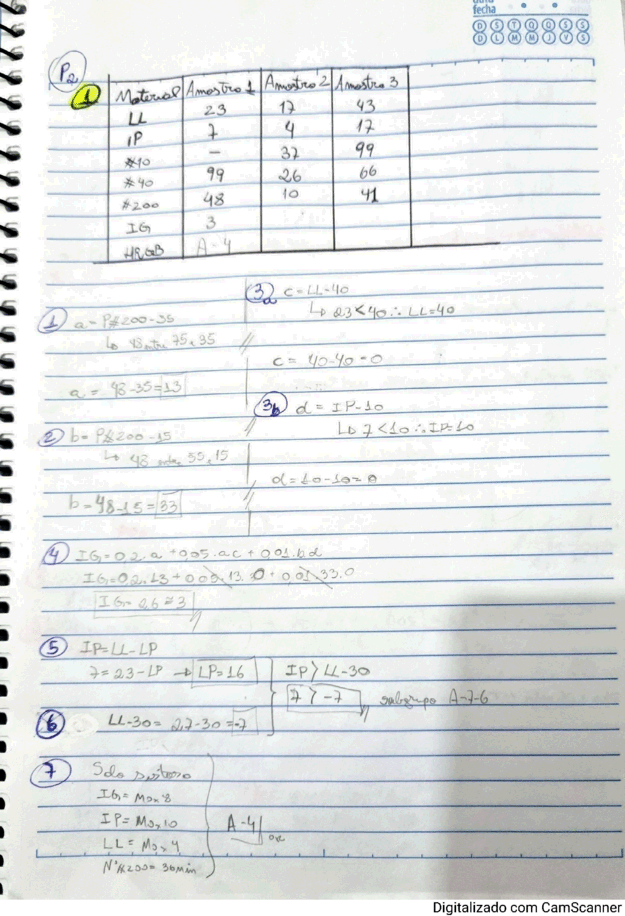 fecha
D S T Q Q S S
D L M M J V S
P2
1
Material Amostra 1 Amostra 2 Amostra 3
LL 23 17 43
IP 7 4 17
#10 - 37 99
#40 99 26 66
#200 48 10 41
IG 3
HRB A-4
1 a = P#200-35
↳ 48 entre 75 e 35
a = 48-35=13
2 b = P#200-15
↳ 48 entre 55 e 15
b = 48-15=33
3a c = LL-40
↳ 23<40 ∴ LL=40
c = 40-40=0
3b d = IP-10
↳ 7<10 ∴ IP=10
d=10-10=0
4 IG=0,2.a+0,05.ac+0,01.bd
IG=0,2.13+0,005.13.0+0,01.33.0
IG=2,6≅3
5 IP=LL-LP
7=23-LP → LP=16
IP > LL-30
7 > -7 subgrupo A-7-6
6 LL-30=27-30=-7
7 Solo siltoso
IG = Max 8
IP = Max 10
LL = Max 4
Nº#200=36min
A-4
Digitalizado com CamScanner